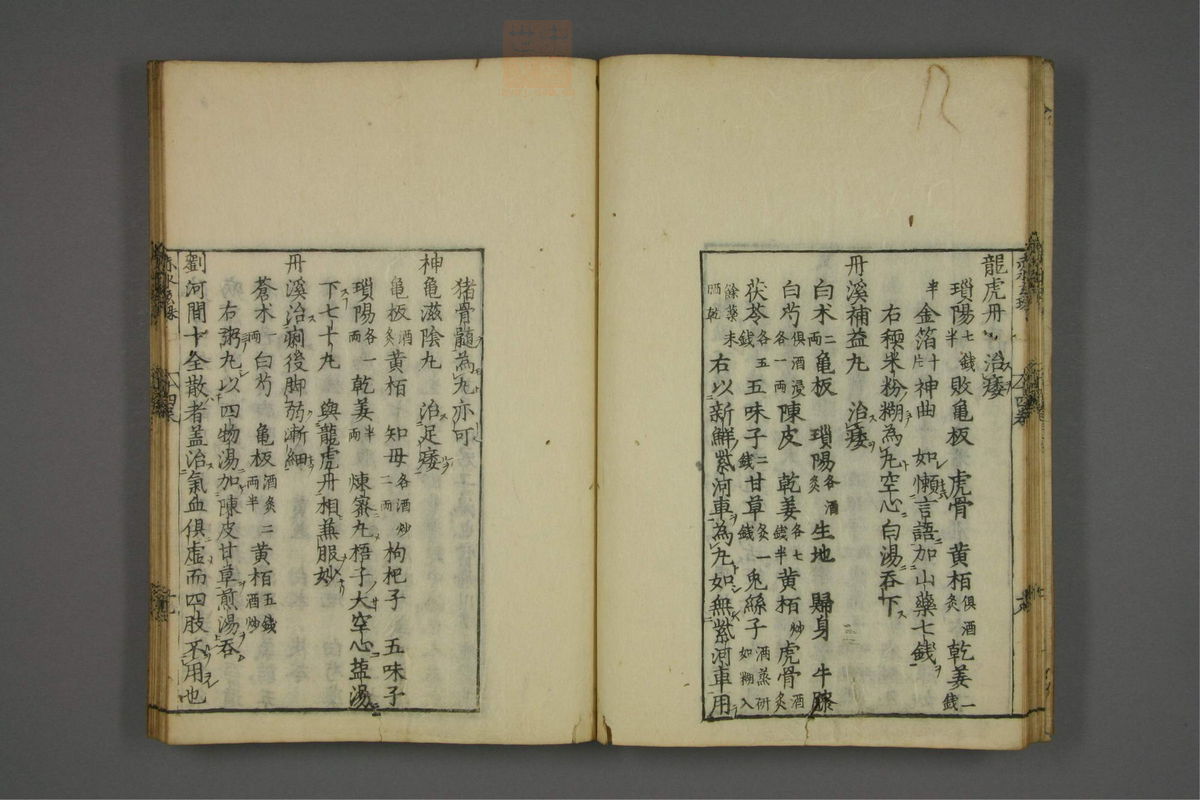 龍虎丹　治痿
瑣陽七錢半敗亀板　虎骨　黄栢俱酒炙乾姜一錢
半金箔十片神曲　如懶言語加山藥七錢
右粳米粉糊為丸空心白湯吞下
丹溪補益丸　治痿
白朮二両亀板　瑣陽各酒炙生地　歸身　牛膝
俱酒浸各一両白芍　陳皮　乾姜各七錢半黄栢炒虎骨酒炙
茯苓各五錢五味子二錢甘草炙一錢兎絲子酒蒸研如糊入
餘薬末晒乾右以新鮮紫河車為丸如無紫河車用
猪骨髓為丸亦可
神亀滋陰丸　治足痿
亀板酒炙黄栢　知母各酒炒二両枸杞子　五味子
瑣陽各一両乾姜半両煉蜜丸梧子大空心盐湯
下七十丸　與龍虎丹相兼服妙
丹溪治痢後脚弱漸細
蒼朮　白芍　亀板酒炙二両半黄栢酒炒五錢
右粥丸以四物湯加陳皮甘草煎湯吞
劉河間十全散者盖治氣血俱虛而四肢不用也